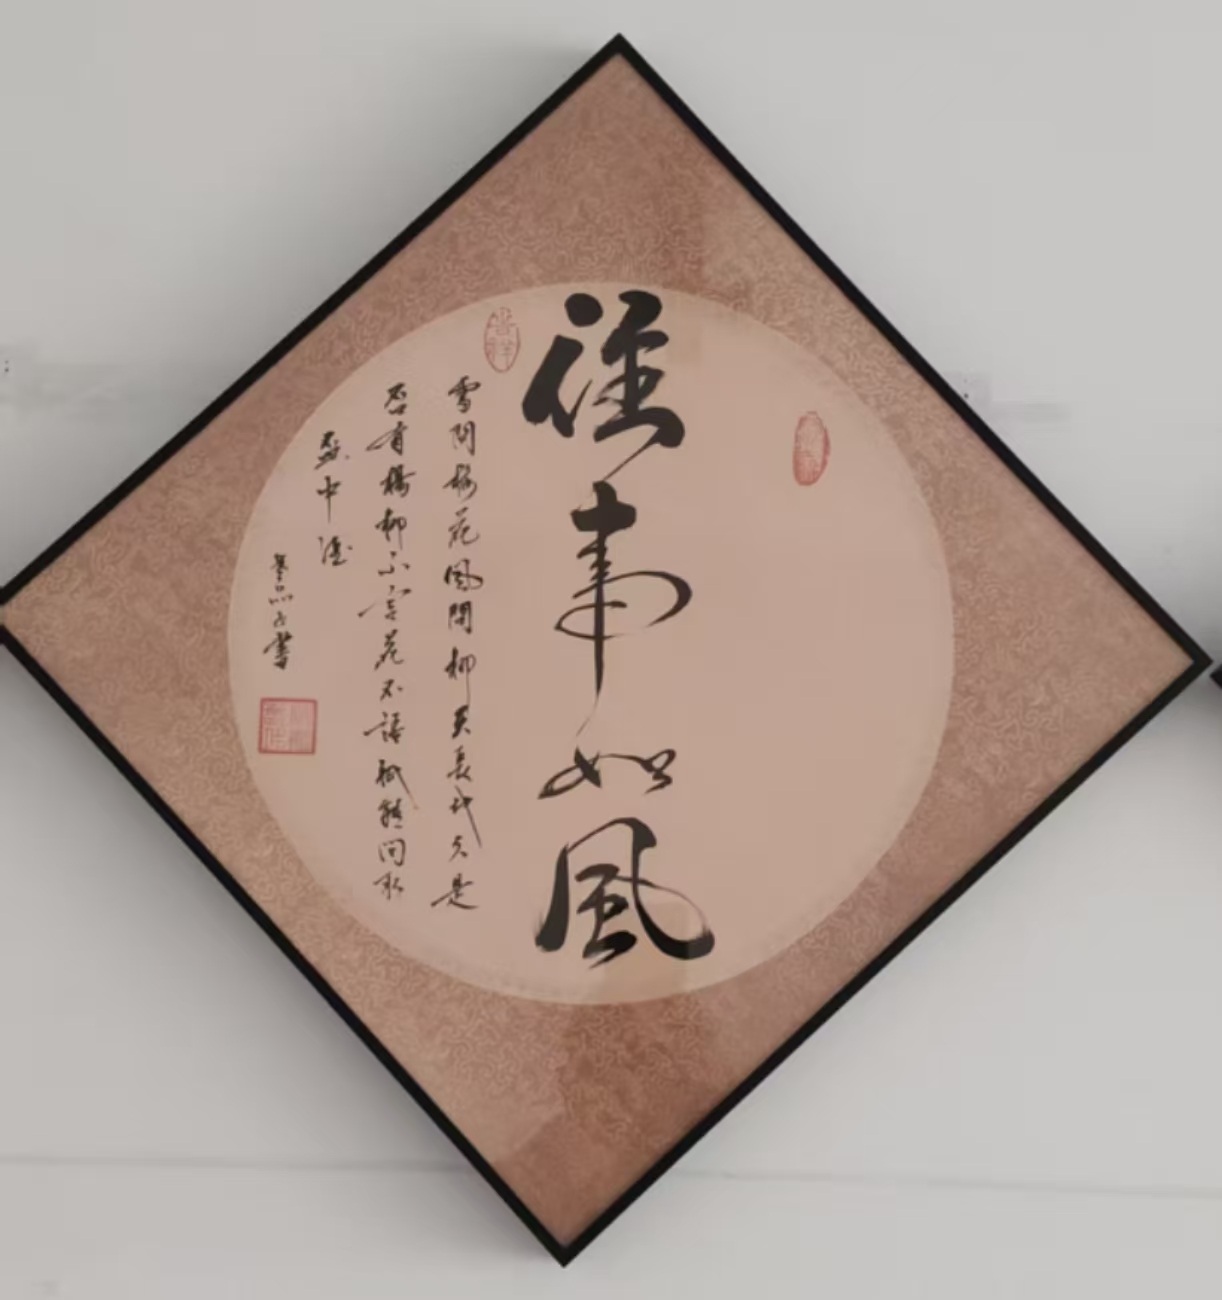 往事如風
雪問梅花風問柳天長地久是
否有楊柳不言花不語祇能問取
杯中酒
書
吉祥